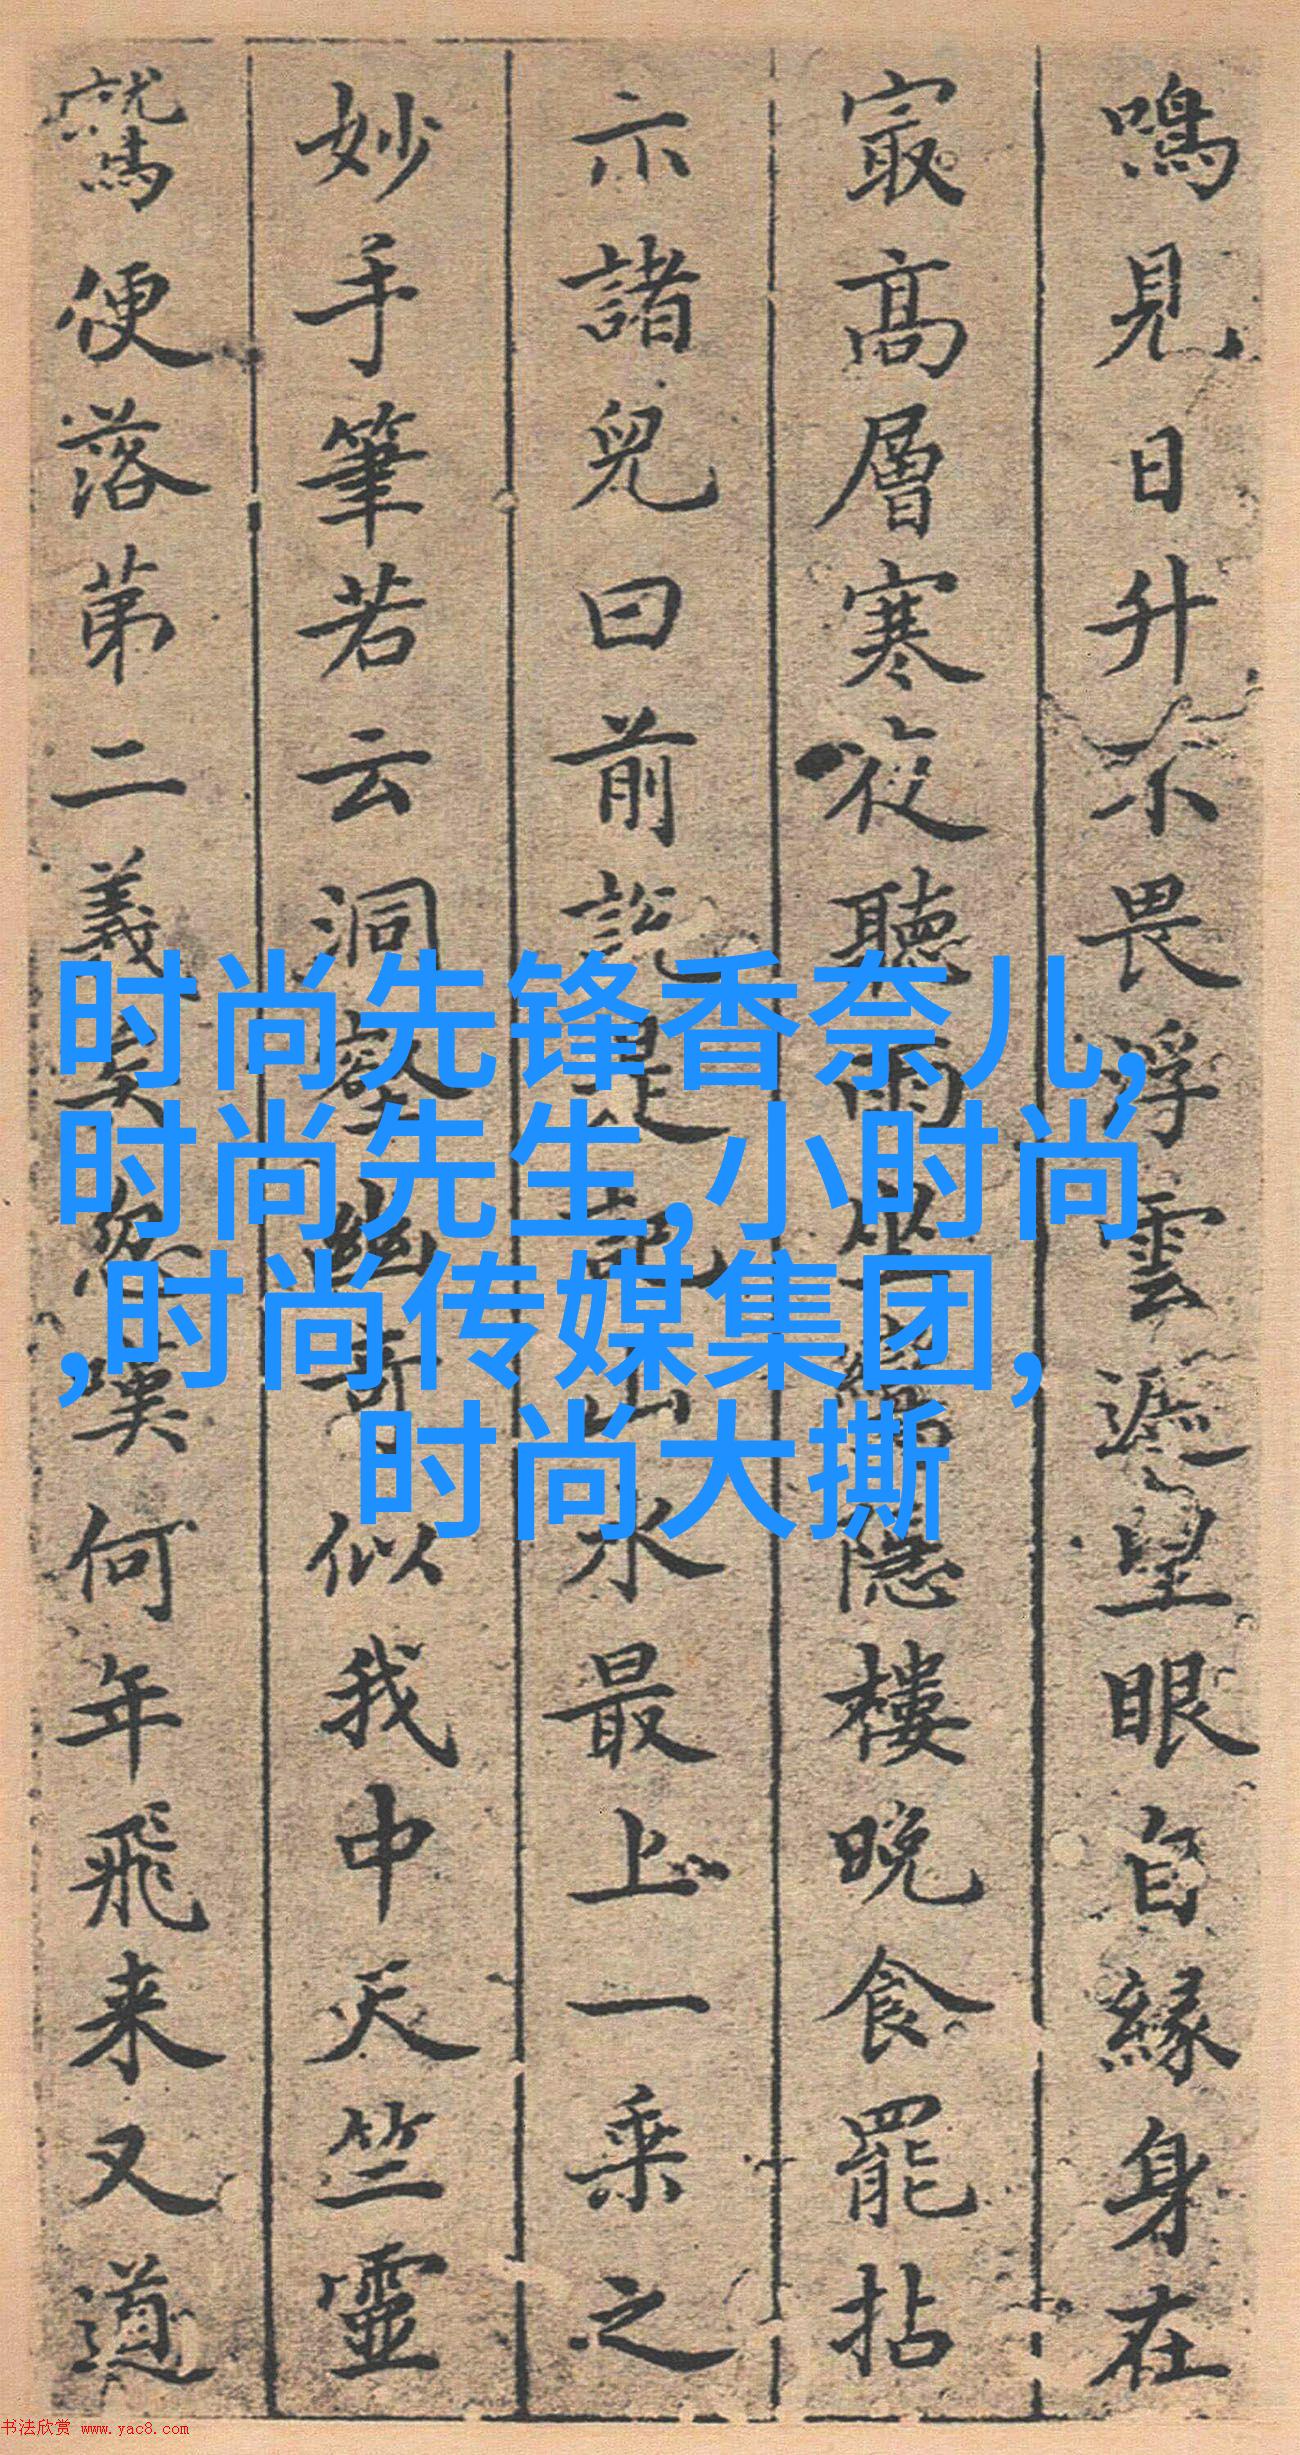 鳴見日升不畏浮雲遮望眼自緣身在
㝡高層寒夜聽雨坐靈隱樓晚食罷拈
示諸兒曰前說是記山水最上一乘之
妙手筆若云洞壑幽奇似我中天竺靈
鷲便落第二義矣忽嘆何年飛来又道
时尚先锋香奈儿,
时尚先生,小时尚
,时尚传媒集团,
时尚大撕
书法欣赏 www.yac8.com